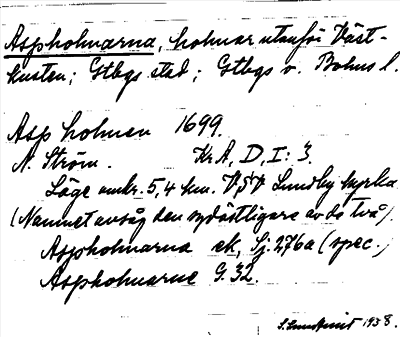 Aspholmarna, holmar utanför Väst-
kusten; Gtbgs stad; Gtbgs o. Bohus l.
Asp holmen 1699.
N. Ström. KrA, D, I: 3.
Läge omkr. 5,4 km. VSV Lundby kyrka
(Namnet avsåg den sydöstligare av de två).
Aspholmarna ek, Sj. 276a (spec.)
Aspholmarne G. 32.
1938.